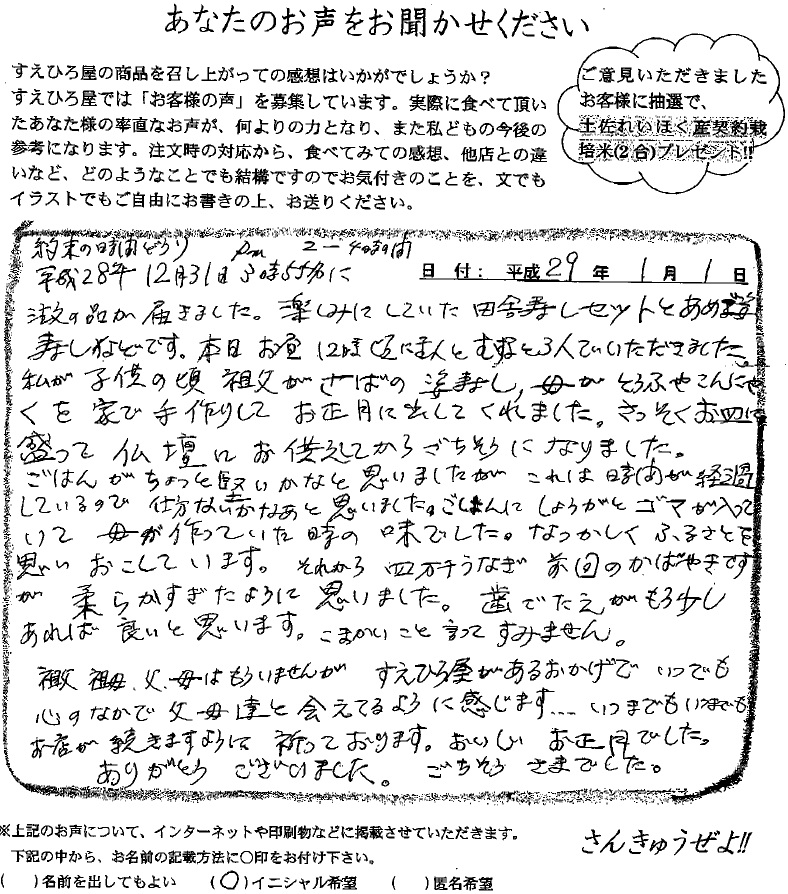 あなたのお声をお聞かせください
すえひろ屋の商品を召し上がっての感想はいかがでしょうか？
すえひろ屋では「お客様の声」を募集しています。実際に食べて頂い
たあなた様の率直なお声が、何よりの力となり、また私どもの今後の
参考になります。注文時の対応から、食べてみての感想、他店との違
いなど、どのようなことでも結構ですのでお気付きのことを、文でも
イラストでもご自由にお書きの上、お送りください。
ご意見いただきました
お客様に抽選で、
土佐れいほく産契約栽
培米(2合)プレゼント!!
約束の時間どうり pm 2-4時の間
平成28年12月31日3時55分に
日付：平成29年1月1日
注文の品が届きました。楽しみにしていた田舎寿しセットとあめご姿
寿しなどです。本日お昼12時頃に主人とむすめと3人でいただきました。
私が子供の頃祖父がさばの姿寿し、母がとうふやこんにゃ
くを家で手作りしてお正月に出してくれました。さっそくお皿に
盛って仏壇にお供えしてからごちそうになりました。
ごはんがちょっと堅いかなと思いましたがこれは時間が経過
しているので仕方ないかなあと思いました。ごはんにしょうがとゴマが入って
いて母が作っていた時の味でした。なつかしくふるさとを
思いおこしています。それから四万十うなぎ前回のかばやきです
が柔らかすぎたように思いました。歯ごたえがもう少し
あれば良いと思います。こまかいこと言ってすみません。
祖父、祖母、父、母はもういませんがすえひろ屋があるおかげでいつでも
心のなかで父母達と会えてるように感じます...いつまでもいつまでも
お店が続きますように祈っております。おいしいお正月でした。
ありがとうございました。ごちそうさまでした。
さんきゅうぜよ!!
※上記のお声について、インターネットや印刷物などに掲載させていただきます。
下記の中から、お名前の記載方法に○印をお付け下さい。
(　)名前を出してもよい　(○)イニシャル希望　(　)匿名希望